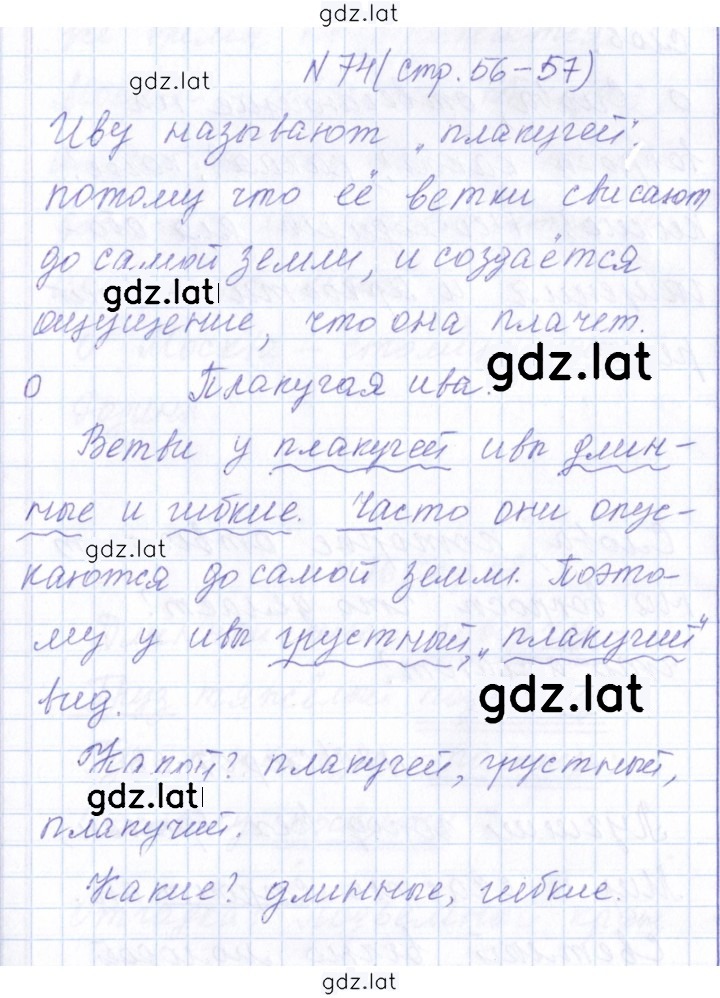 gdz.lat
N 74 (стр. 56-57)
gdz.lat
Иву называют „плакучей",
потому что её ветки свисают
до самой земли, и создаётся
gdz.lat
ощущение, что она плачет.
gdz.lat
О Плакучая ива.
Ветви у плакучей ивы длин-
ные и гибкие. Часто они опус-
gdz.lat
каются до самой земли. Поэто-
му у ивы грустный, „плакучий"
gdz.lat
вид.
Какой? плакучей, грустный,
gdz.lat
плакучий.
Какие? длинные, гибкие.
gdz.lat